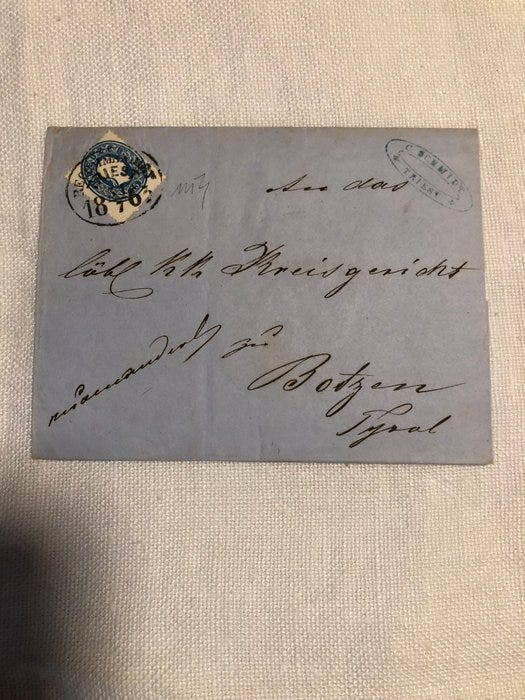 C. SCHMIDT
TRIEST
18 76
An das
löbl kk Kreisgericht
zu
Botzen
Tyrol